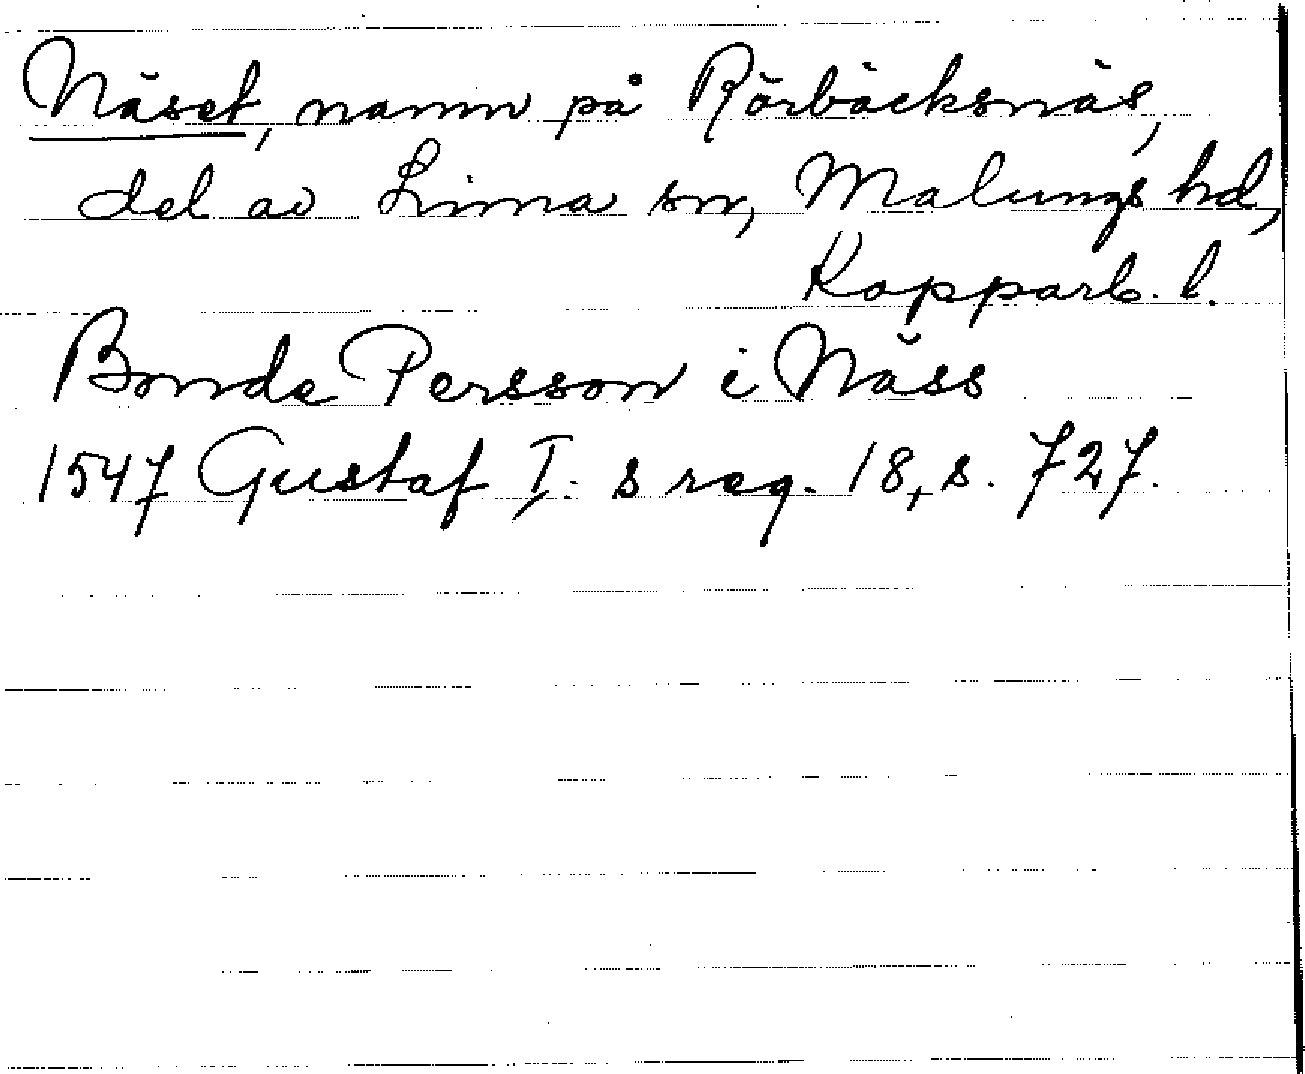 Näset, namn på Rörbäcksnäs,
del av Lima sn, Malungs hd,
Kopparb. l.
Bonde Persson i Näss
1547 Gustaf I. s reg. 18, s. 727.